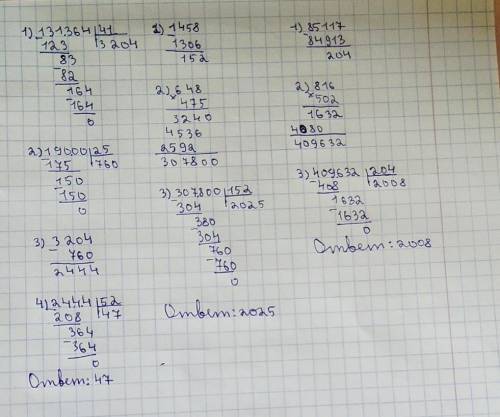 1) 131364 | 41
- 123 | 3204
83
- 82
164
- 164
0
2) 19000 | 25
175 | 760
- 150
150
0
3) - 3204
760
2444
4) 2444 | 52
- 208 | 47
364
- 364
0
Ответ: 47
1) - 1458
1306
152
2) × 648
475
3240
4536
2592
307800
3) 307800 | 152
- 304 | 2025
380
- 304
760
- 760
0
Ответ: 2025
1) - 85117
84913
204
2) × 816
502
1632
4080
409632
3) 409632 | 204
- 408 | 2008
1632
- 1632
0
Ответ: 2008